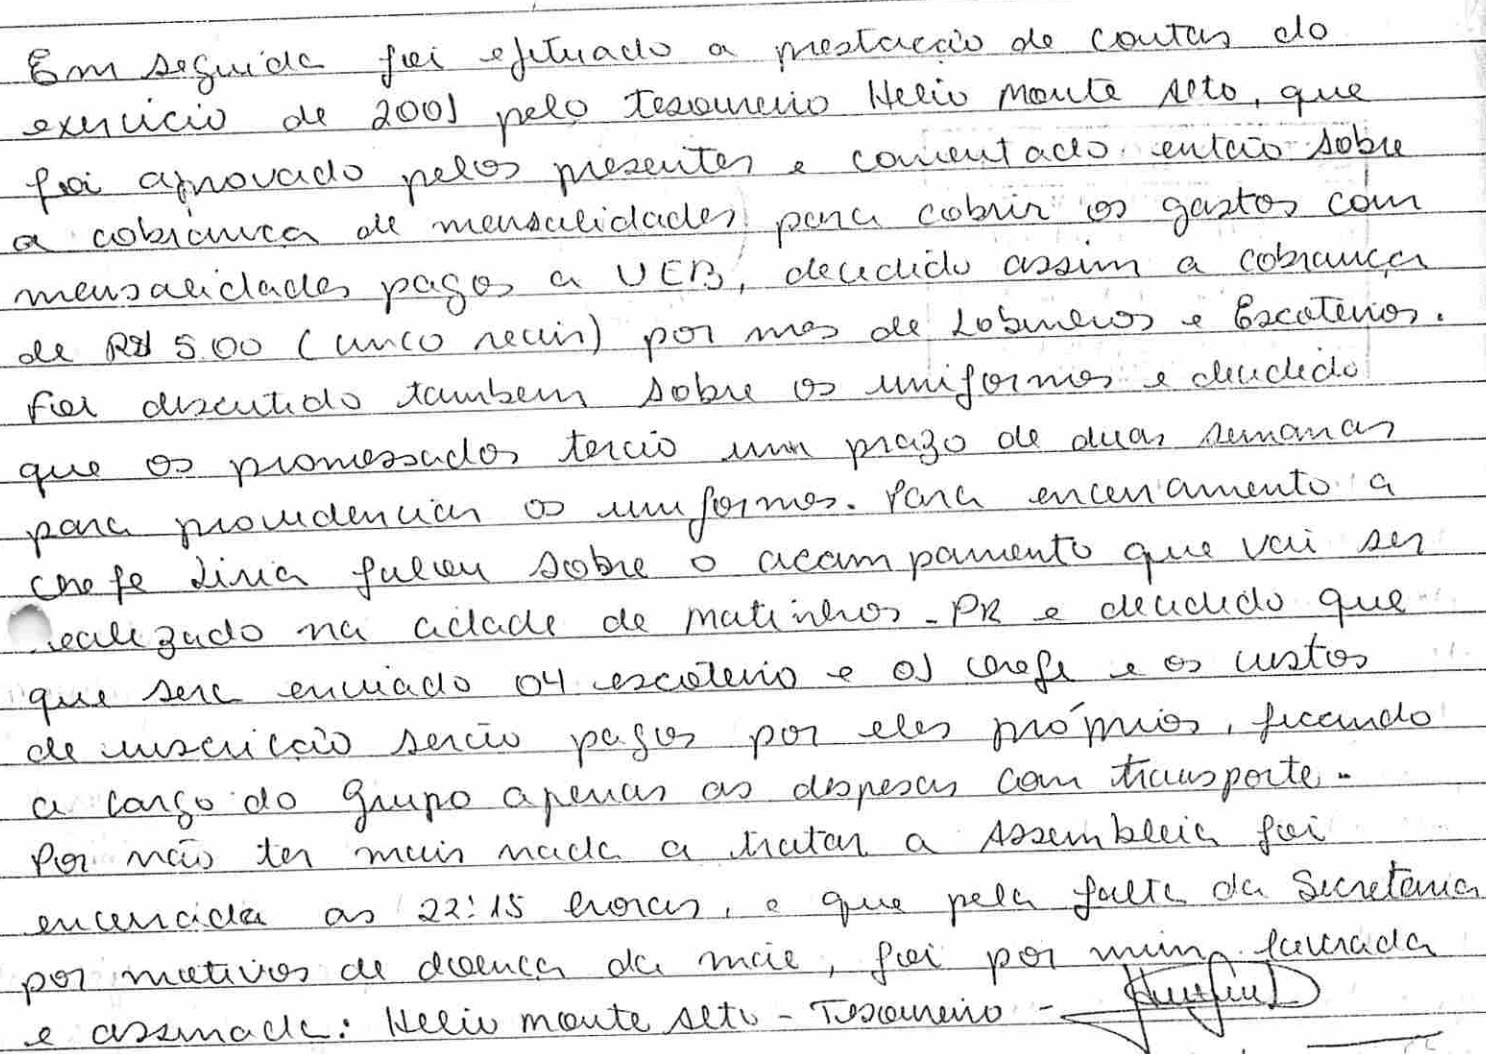 Em seguida foi efetuado a prestacão de contas do
exercicio de 2001 pelo tesoureiro Helio Monte Alto, que
foi aprovado pelos presentes e comentado então sobre
a cobrança de mensalidades para cobrir os gastos com
mensalidades pagos a UEB, decidido assim a cobrança
de R$ 5.00 (cinco reais) por mes de Lobinhos e Escoteiros.
Foi discutido tambem sobre os uniformes e decidido
que os promessados terão um prazo de duas semanas
para providenciar os uniformes. Para encerramento a
chefe Liria falou sobre o acampamento que vai ser
realizado na cidade de Matinhos - PR e decidido que
que sera enviado 04 escoteiro e 01 chefe e os custos
de inscricão serão pagos por eles próprios, ficando
a cargo do Grupo apenas as despesas com transporte -
Por não ter mais nada a tratar a Assembleia foi
encerrada as 22:15 horas, e que pela falta da Secretaria
por motivos de doença da mãe, foi por mim lavrada
e assinada: Helio Monte Alto - Tesoureiro -